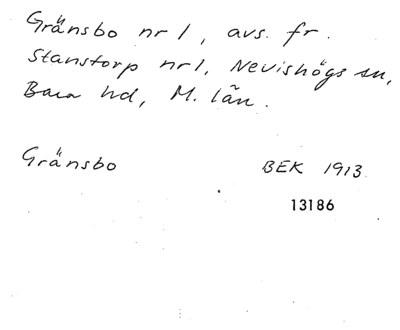 Gränsbo nr 1, avs. fr.
Stanstorp nr 1, Nevishögs sn,
Bara hd, M. län.
Gränsbo BEK 1913
13186